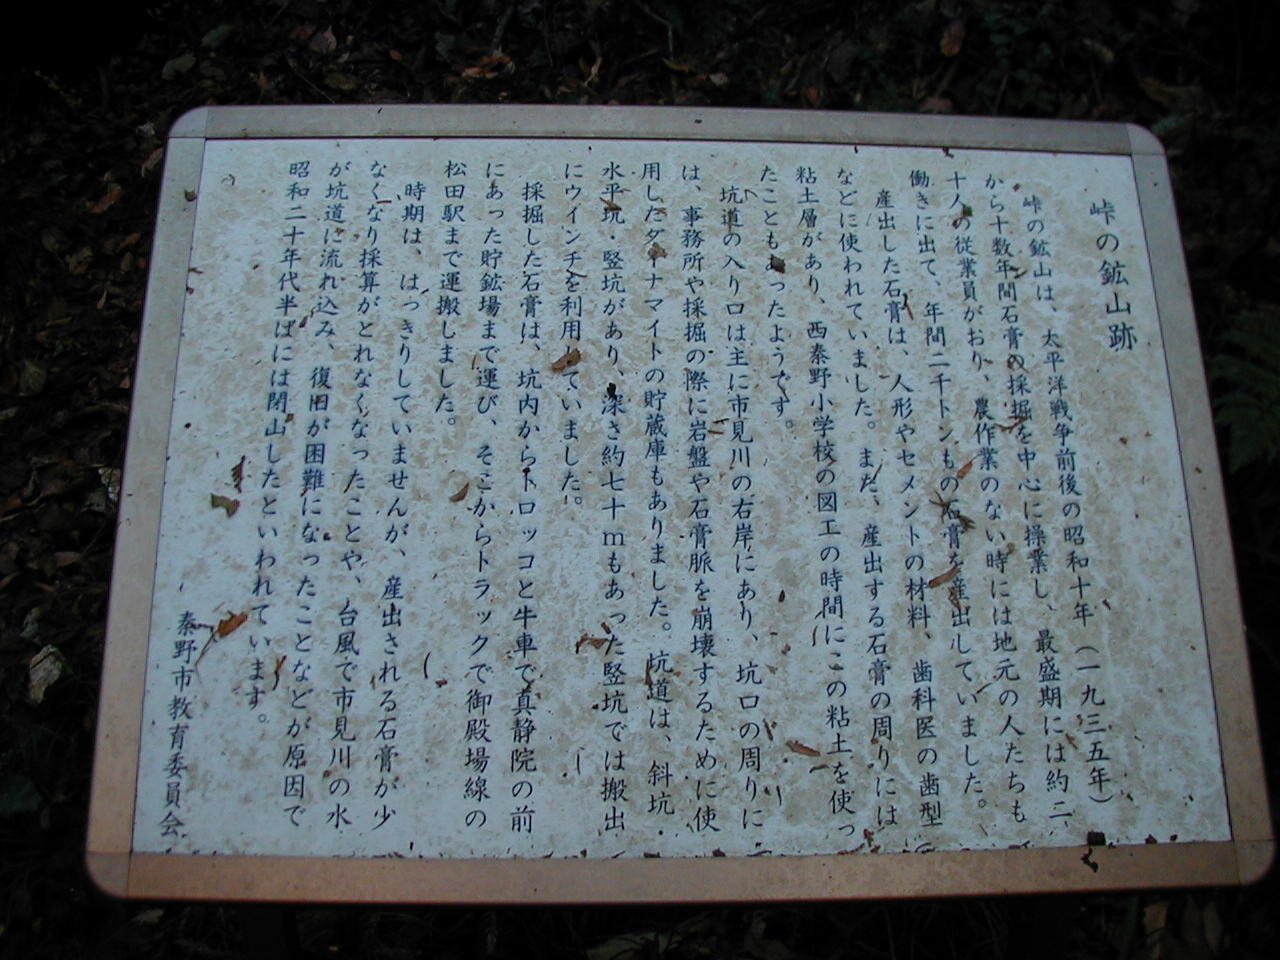 峠の鉱山跡
峠の鉱山は、太平洋戦争前後の昭和十年（一九三五年）
から十数年間石膏の採掘を中心に操業し、最盛期には約二
十人の従業員がおり、農作業のない時には地元の人たちも
働きに出て、年間二千トンもの石膏を産出していました。
産出した石膏は、人形やセメントの材料、歯科医の歯型
などに使われていました。また、産出する石膏の周りには
粘土層があり、西秦野小学校の図工の時間にこの粘土を使っ
たこともあったようです。
坑道の入り口は主に市見川の右岸にあり、坑口の周りに
は、事務所や採掘の際に岩盤や石膏脈を崩壊するために使
用したダイナマイトの貯蔵庫もありました。坑道は、斜坑
水平坑・竪坑があり、深さ約七十ｍもあった竪坑では搬出
にウインチを利用していました。
採掘した石膏は、坑内からトロッコと牛車で真静院の前
にあった貯鉱場まで運び、そこからトラックで御殿場線の
松田駅まで運搬しました。
時期は、はっきりしていませんが、産出される石膏が少
なくなり採算がとれなくなったことや、台風で市見川の水
が坑道に流れ込み、復旧が困難になったことなどが原因で
昭和二十年代半ばには閉山したといわれています。
秦野市教育委員会